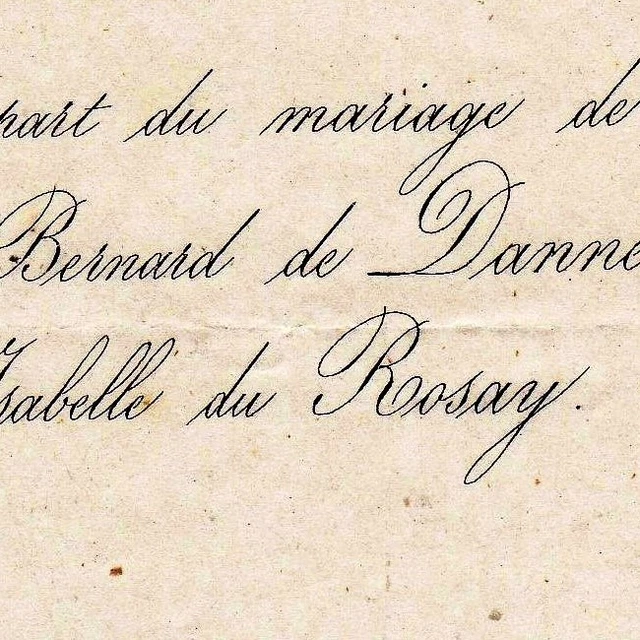 part du mariage de
Bernard de Danne
Isabelle du Rosay.